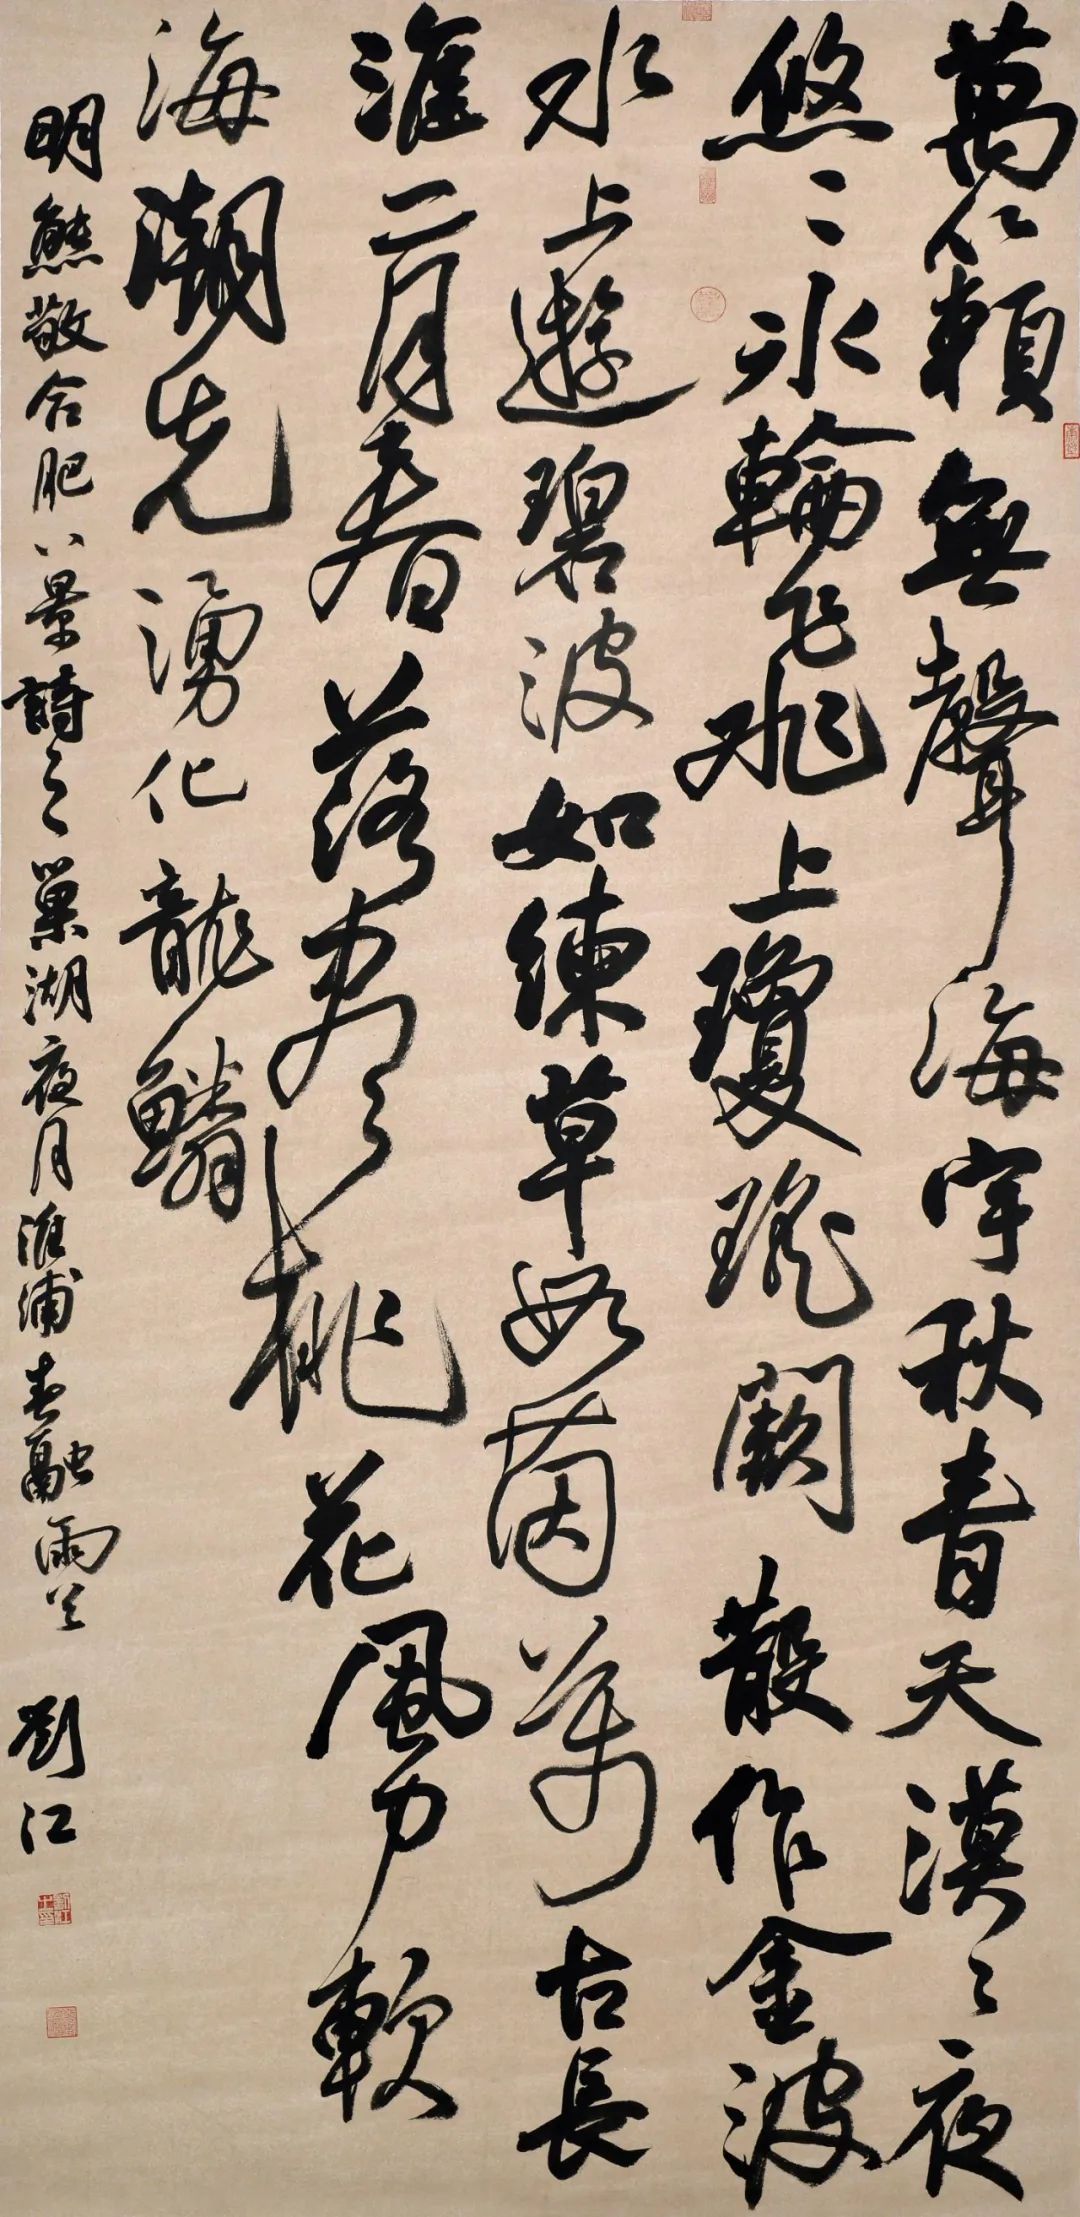 萬籟無聲海宇秋青天漠々夜
悠々冰輪飛飛上瓊瑤闕散作金波
水上遊碧波如練草如茵萬古長
淮二月春落盡桃花風力軟
海潮先湧化龍鱗
明熊敬合肥八景詩之巢湖夜月淮浦春融兩首
劉江